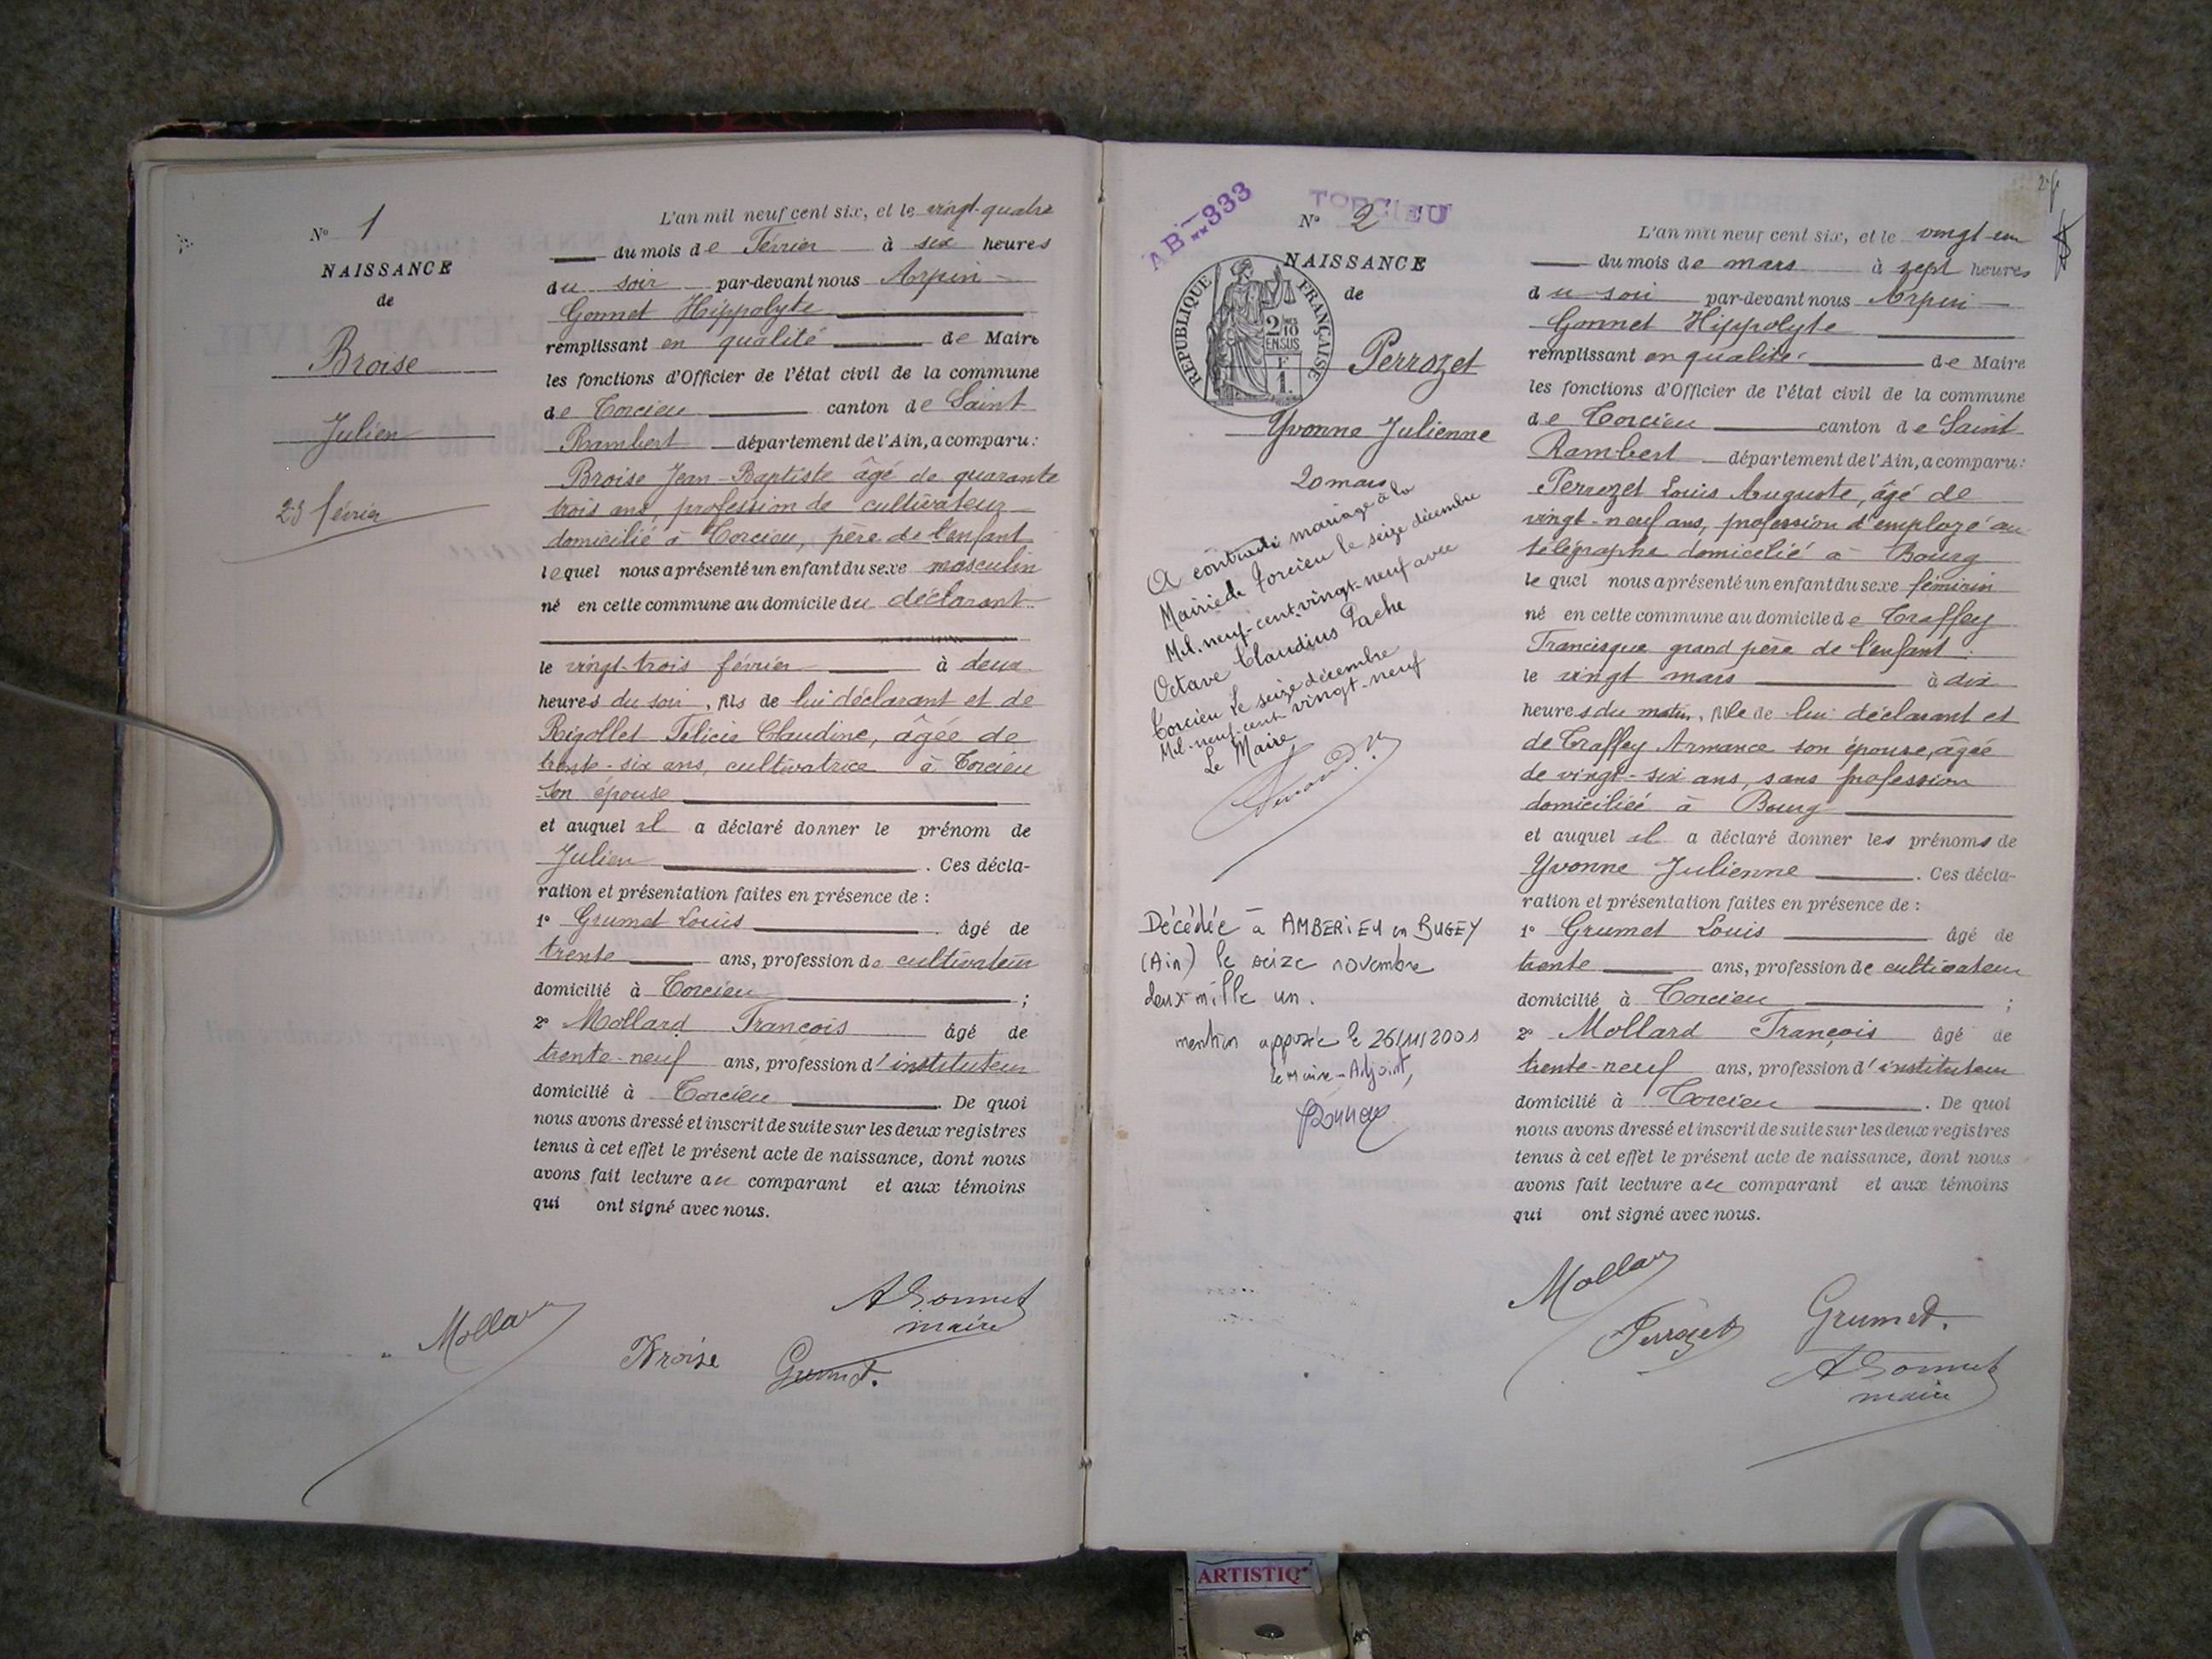 N° 1
NAISSANCE
de
Broise
Julien
23 février
L'an mil neuf cent six, et le vingt-quatre
du mois de Février à six heures
du soir par-devant nous Arpin
Gonnet Hippolyte
remplissant en qualité de Maire
les fonctions d'Officier de l'état civil de la commune
de Torcieu canton de Saint
Rambert département de l'Ain, a comparu :
Broise Jean-Baptiste âgé de quarante
trois ans, profession de cultivateur
domicilié à Torcieu, père de l'enfant
lequel nous a présenté un enfant du sexe masculin
né en cette commune au domicile du déclarant
le vingt-trois février à deux
heures du soir, fils de lui déclarant et de
Rigollet Félicie Claudine, âgée de
trente-six ans, cultivatrice à Torcieu
son épouse
et auquel il a déclaré donner le prénom de
Julien . Ces décla-
ration et présentation faites en présence de :
1° Grumet Louis âgé de
trente ans, profession de cultivateur
domicilié à Torcieu ;
2° Mollard François âgé de
trente-neuf ans, profession d'instituteur
domicilié à Torcieu . De quoi
nous avons dressé et inscrit de suite sur les deux registres
tenus à cet effet le présent acte de naissance, dont nous
avons fait lecture au comparant et aux témoins
qui ont signé avec nous.
Mollard
Broise
Grumet.
A Gonnet
maire
AB 333
TORCIEU
N° 2
NAISSANCE
de
REPUBLIQUE FRANÇAISE
2/10
EN SUS
F
1.
Perrozet
Yvonne Julienne
20 mars
A contracté mariage à la
Mairie de Torcieu le seize décembre
Mil-neuf-cent-vingt-neuf avec
Octave Claudius Pache
Torcieu le seize décembre
Mil-neuf-cent vingt-neuf
Le Maire
Décédée à AMBERIEU en BUGEY
(Ain) le seize novembre
deux mille un.
mention apposée le 26/11/2001
le Maire-Adjoint,
L'an mil neuf cent six, et le vingt-un
du mois de mars à sept heures
du soir par-devant nous Arpin
Gonnet Hippolyte
remplissant en qualité de Maire
les fonctions d'Officier de l'état civil de la commune
de Torcieu canton de Saint
Rambert département de l'Ain, a comparu :
Perrozet Louis Auguste, âgé de
vingt-neuf ans, profession d'employé au
télégraphe domicilié à Bourg
lequel nous a présenté un enfant du sexe féminin
né en cette commune au domicile de Traffey
Francisque grand père de l'enfant
le vingt mars à dix
heures du matin, fille de lui déclarant et
de Traffey Armance son épouse, âgée
de vingt-six ans, sans profession
domiciliée à Bourg
et auquel il a déclaré donner les prénoms de
Yvonne Julienne . Ces décla-
ration et présentation faites en présence de :
1° Grumet Louis âgé de
trente ans, profession de cultivateur
domicilié à Torcieu ;
2° Mollard François âgé de
trente-neuf ans, profession d'instituteur
domicilié à Torcieu . De quoi
nous avons dressé et inscrit de suite sur les deux registres
tenus à cet effet le présent acte de naissance, dont nous
avons fait lecture au comparant et aux témoins
qui ont signé avec nous.
Mollard
Perrozet
Grumet.
A Gonnet
maire
ARTISTIQ